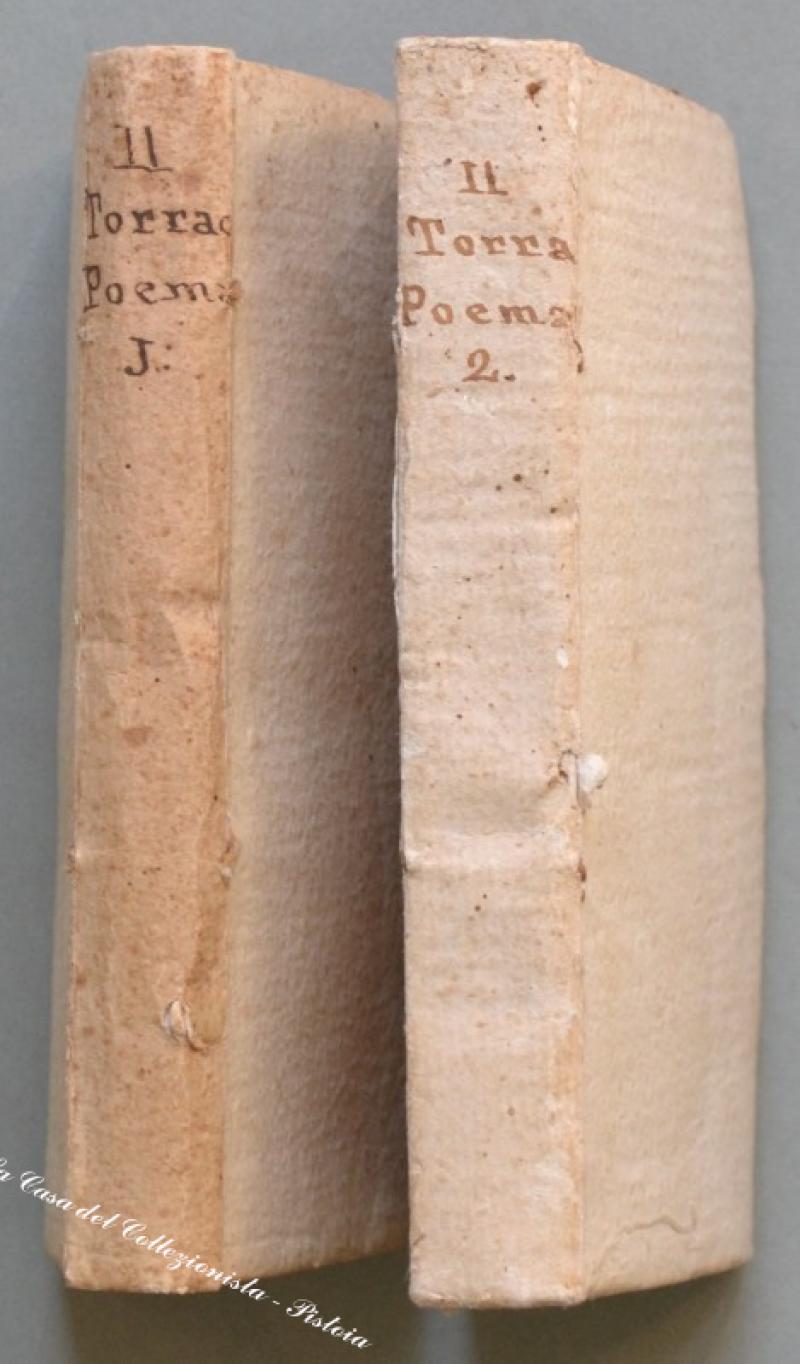 Il
Torrac
Poema
J.
Il
Torra
Poema
2.
La Casa del Collezionista - Pistoia